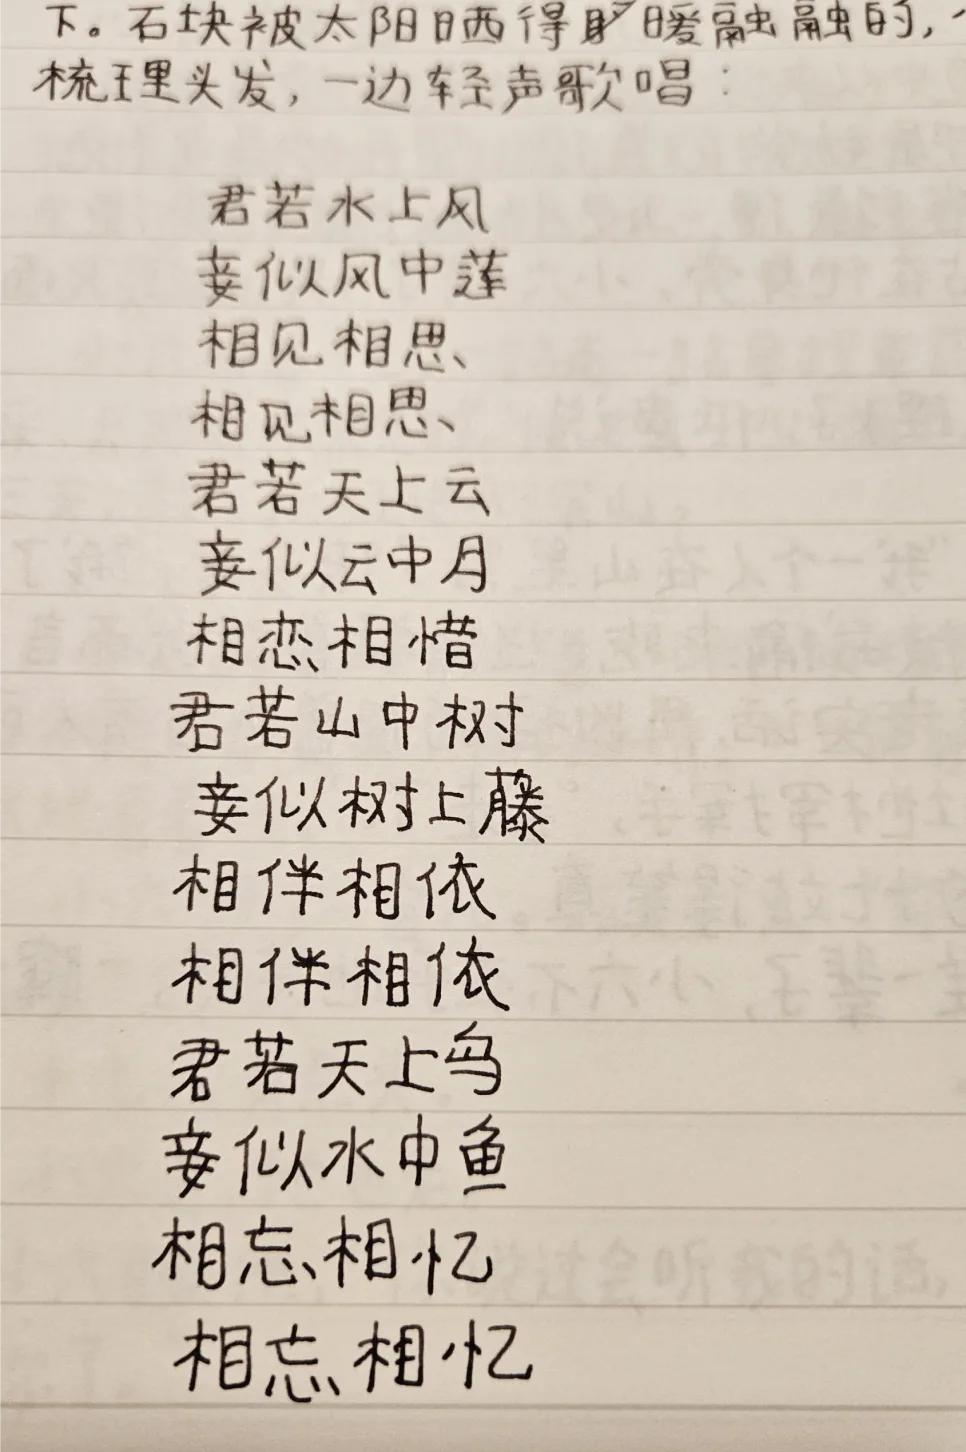 下。石块被太阳晒得暖融融的,
梳理头发,一边轻声歌唱:
君若水上风
妾似风中莲
相见相思、
相见相思、
君若天上云
妾似云中月
相恋相惜
君若山中树
妾似树上藤
相伴相依
相伴相依
君若天上鸟
妾似水中鱼
相忘相忆
相忘相忆